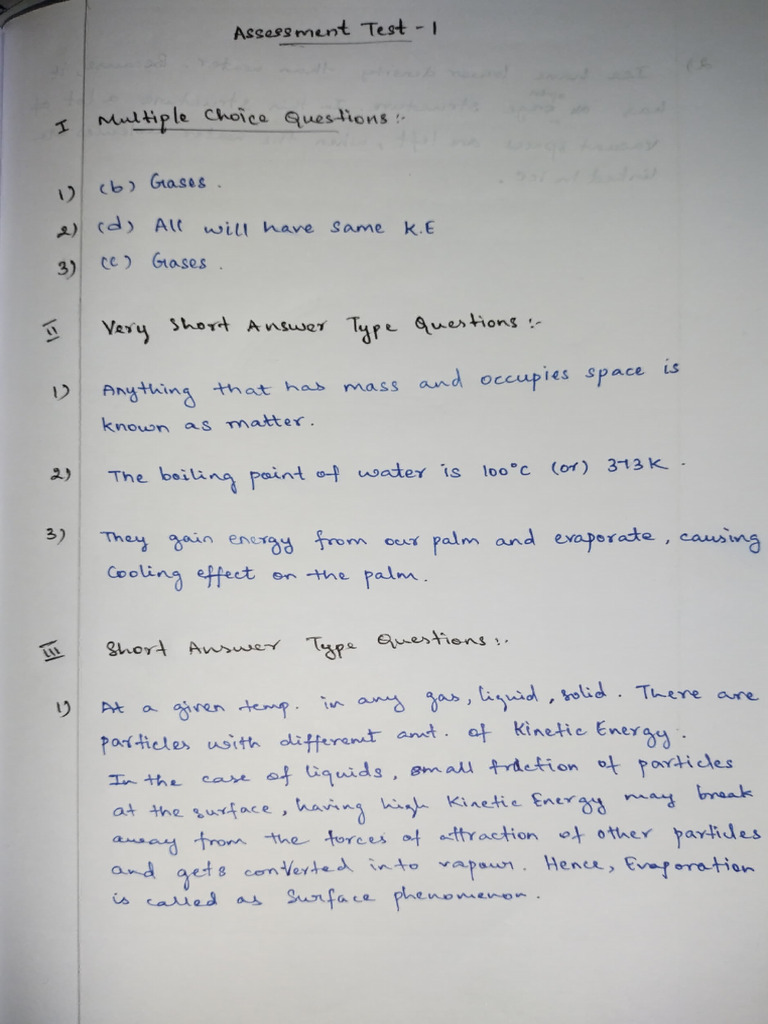 Assessment Test - 1
I Multiple Choice Questions :-
1) (b) Gases.
2) (d) All will have same K.E
3) (c) Gases.
II Very Short Answer Type Questions :-
1) Anything that has mass and occupies space is
known as matter.
2) The boiling point of water is 100°C (or) 373K.
3) They gain energy from our palm and evaporate, causing
Cooling effect on the palm.
III Short Answer Type Questions :-
1) At a given temp. in any gas, liquid, solid. There are
particles with different amt. of Kinetic Energy.
In the case of liquids, small fraction of particles
at the surface, having high Kinetic Energy may break
away from the forces of attraction of other particles
and gets converted into vapour. Hence, Evaporation
is called as Surface phenomenon.